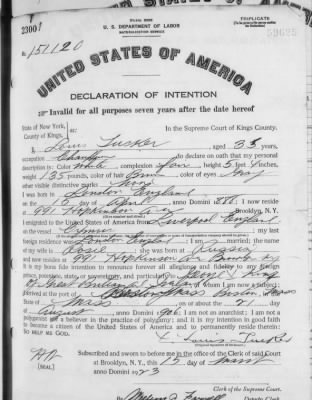 TRIPLICATE
U. S. DEPARTMENT OF LABOR
NATURALIZATION SERVICE
No. 151120
UNITED STATES OF AMERICA
DECLARATION OF INTENTION
Invalid for all purposes seven years after the date hereof
State of New York,
County of Kings, ss:
In the Supreme Court of Kings County.
I, Louis Tusker, aged 33 years,
occupation, do declare on oath that my personal
description is: Color White, complexion Fair, height 5 feet inches,
weight 135 pounds, color of hair, color of eyes Gray
other visible distinctive marks None
I was born in London England
on the 15 day of April, anno Domini; I now reside at
991 Hopkinson Ave, Brooklyn, N.Y.
I emigrated to the United States of America from Liverpool England
on the vessel; my last
foreign residence was London England; I am married; the name
of my wife is Rose; she was born at Russia
and now resides at 991 Hopkinson Av Brooklyn NY
It is my bona fide intention to renounce forever all allegiance and fidelity to any foreign
prince, potentate, state, or sovereignty, and particularly to George V King
of Great Britain & Ireland, of whom I am now a subject; I
arrived at the port of Boston, Mass
State of Mass, on or about the 21 day
of August, anno Domini; I am not an anarchist; I am not a
polygamist nor a believer in the practice of polygamy; and it is my intention in good faith
to become a citizen of the United States of America and to permanently reside therein:
SO HELP ME GOD.
Louis Tusker
Subscribed and sworn to before me in the office of the Clerk of said Court
at Brooklyn, N.Y., this 15 day of
anno Domini 1923
[SEAL]
Clerk of the Supreme Court.